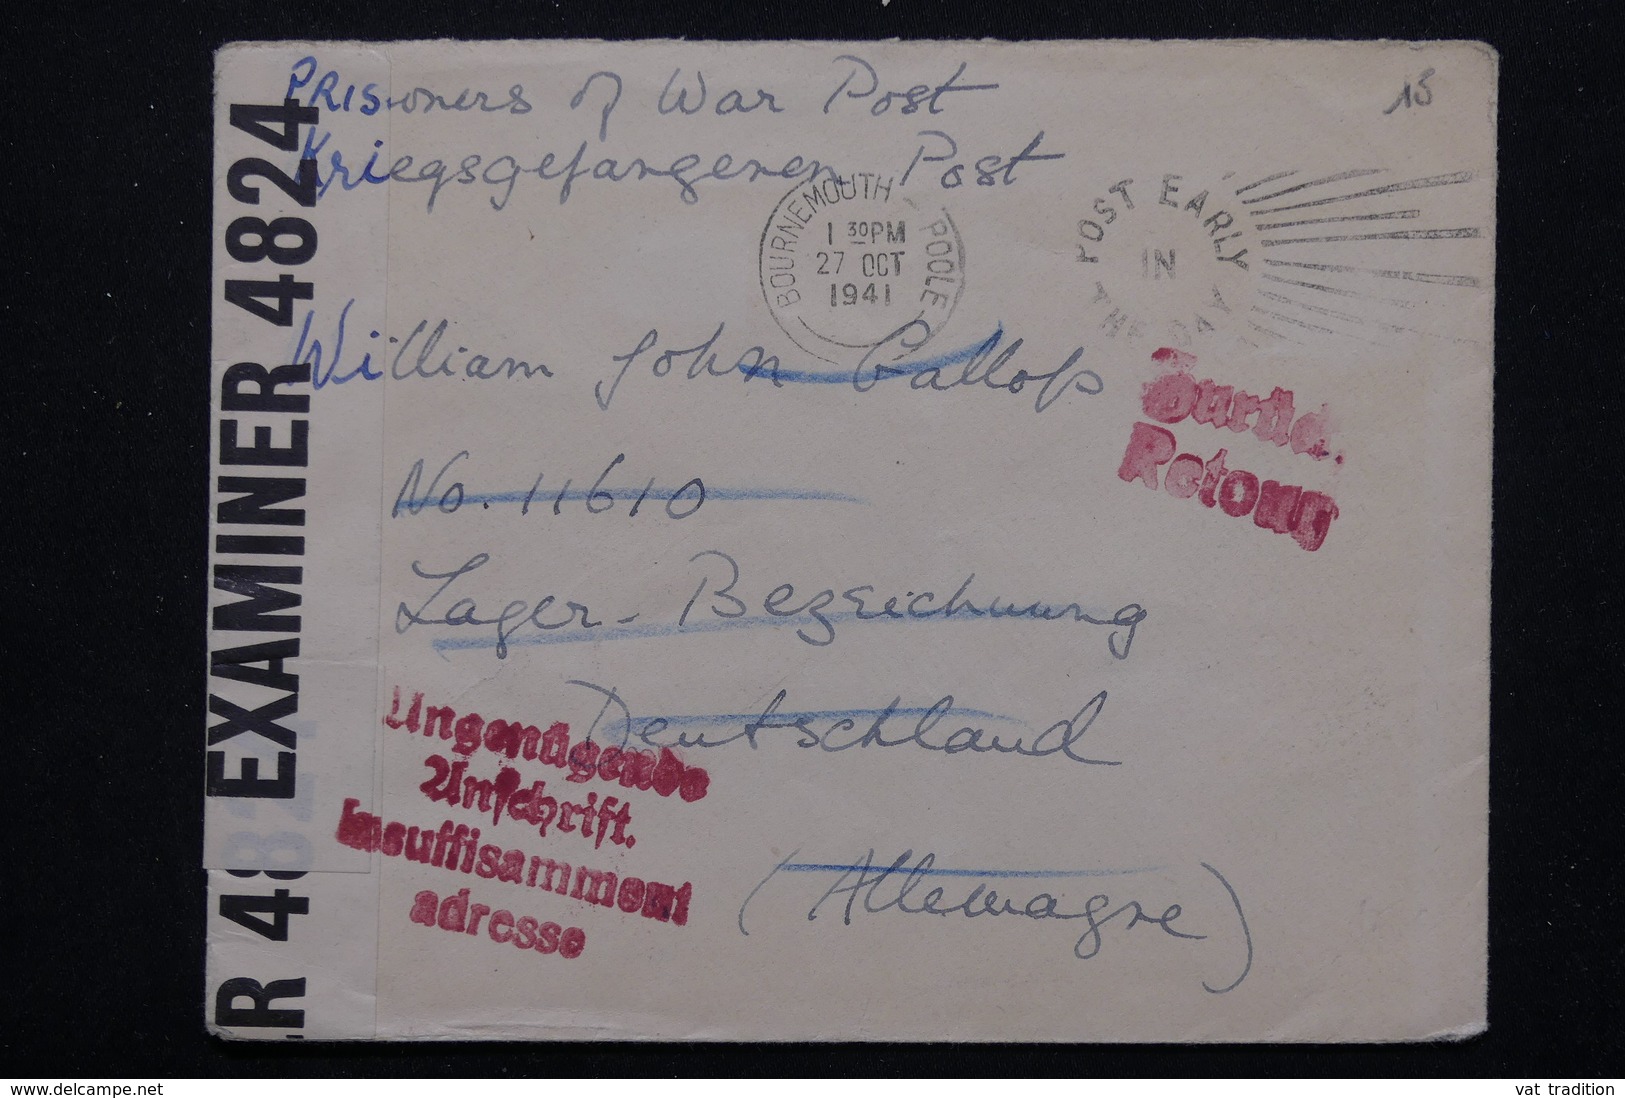 Prisoners of War Post
Kriegsgefangenen Post
13
BOURNEMOUTH - POOLE
1 30 PM
27 OCT
1941
POST EARLY
IN
THE DAY
William John Gallop
Zurück.
Retour
No. 11610
Lager-Bezeichnung
Deutschland
(Allemagne)
Ungenügende
Anschrift.
Insuffisamment
adresse
EXAMINER 4824
R 48
www.delcampe.net
vat tradition